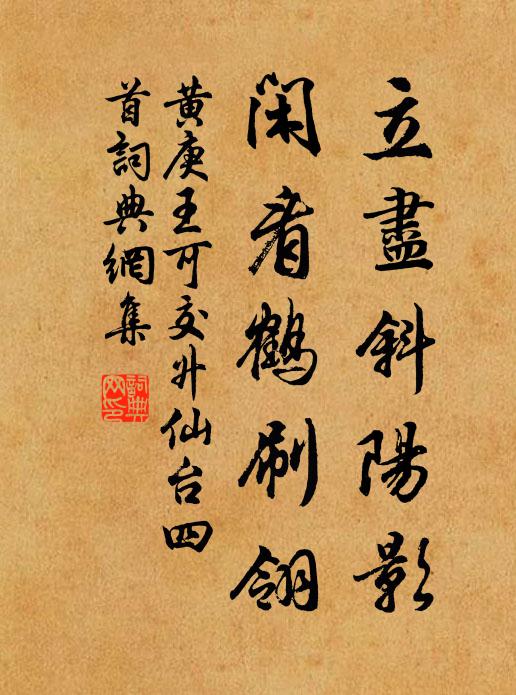 立盡斜陽影
閑看鶴刷翎
黄庚王可交升仙台四
首詞典網集
詞典
网印